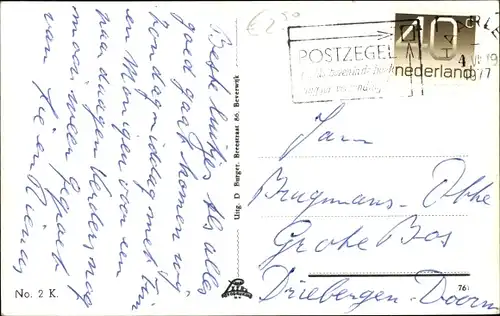 Beste luitjes Als alles
goed gaat komen wij
Zondagmiddag met Tim
en Monique voor een
paar daagen Verder nog
mooi weer gegroet
van Sie en Rienus
€ 2.50
POSTZEGEL
10 CR
nederland
4
1977
Uitg. D Burger, Breestraat 86, Beverwijk
Fam
Brugmans-Okke
Grote Bos
Driebergen-Doorn
No. 2 K.
761